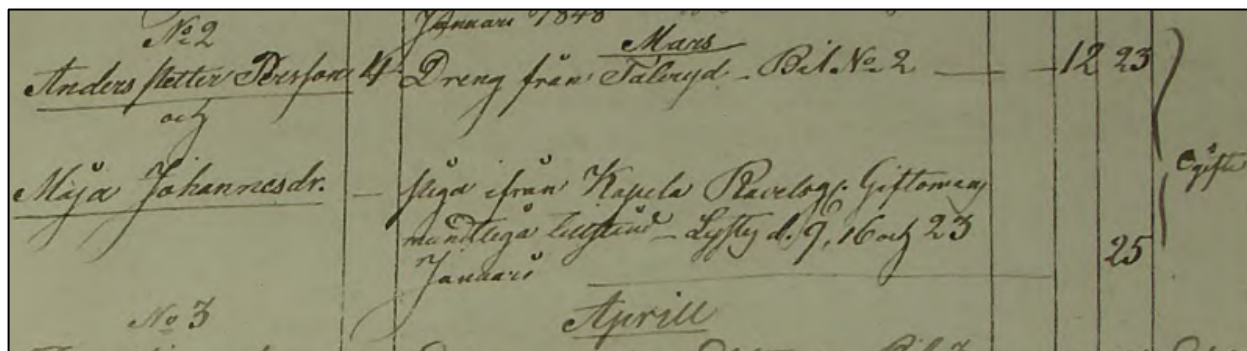 Januari 1848
No 2
Mars
Anders Petter Persson 4 Dreng från Taleryd - Bil. No 2 12 23
och
Ogifte
Maja Johannesdr. - Piga ifrån Kapela Giftomans
muntliga - Lystes d. 9, 16 och 23
Januari 25
No 3 Aprill